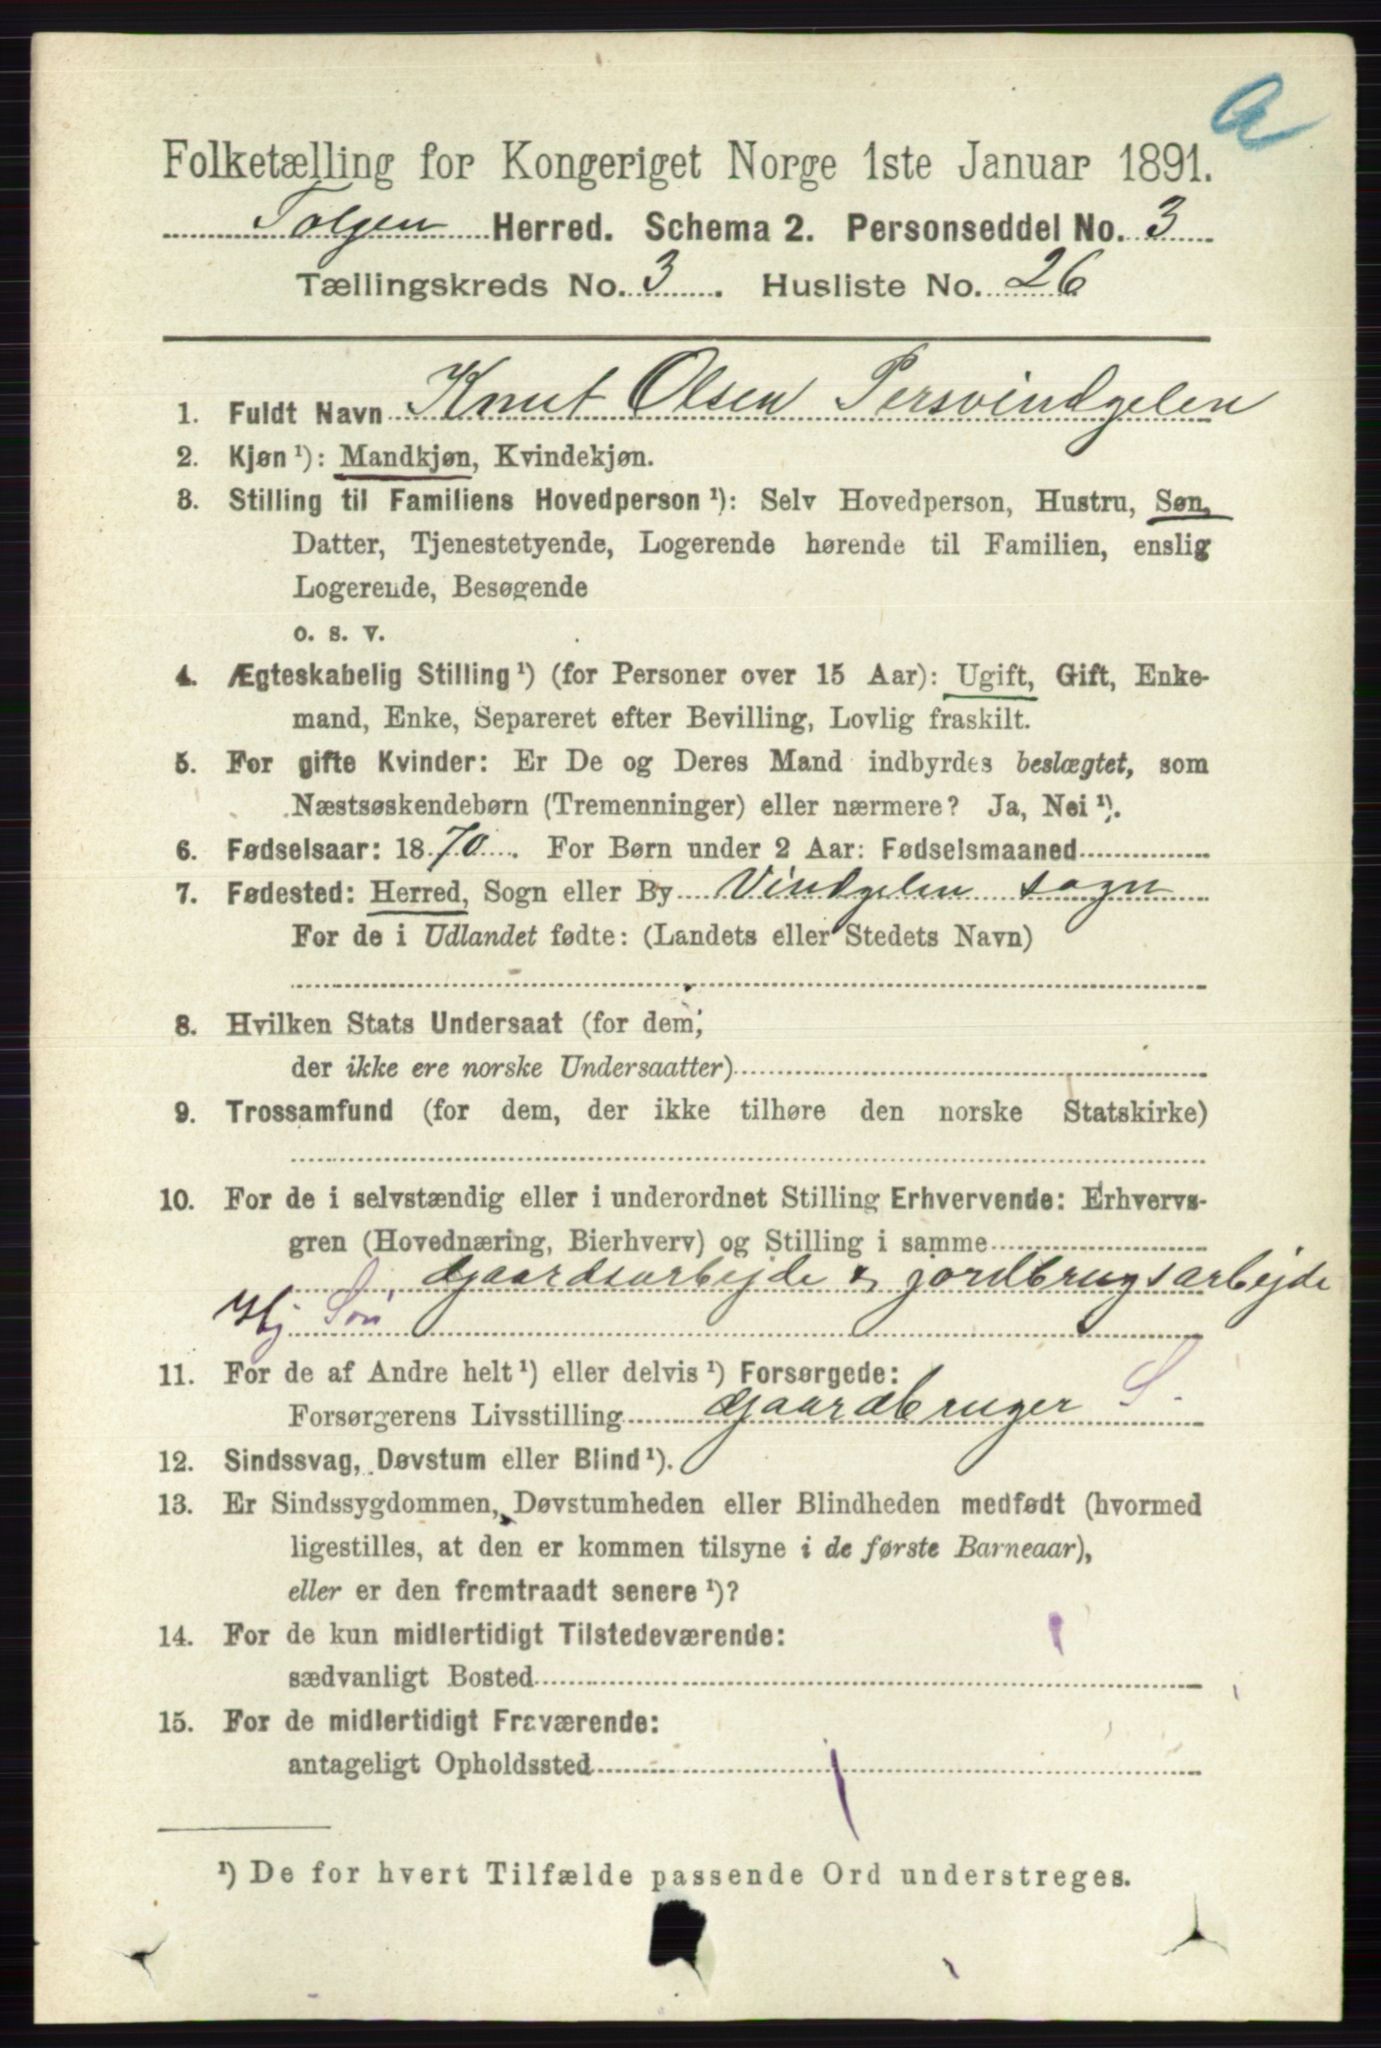 A
Folketælling for Kongeriget Norge 1ste Januar 1891.
Tolgen Herred. Schema 2. Personseddel No. 3
Tællingskreds No. 3. Husliste No. 26
1. Fuldt Navn Knut Olsen Persvindgelen
2. Kjøn¹): Mandkjøn, Kvindekjøn.
3. Stilling til Familiens Hovedperson¹): Selv Hovedperson, Hustru, Søn,
Datter, Tjenestetyende, Logerende hørende til Familien, enslig
Logerende, Besøgende
o. s. v.
4. Ægteskabelig Stilling¹) (for Personer over 15 Aar): Ugift, Gift, Enke-
mand, Enke, Separeret efter Bevilling, Lovlig fraskilt.
5. For gifte Kvinder: Er De og Deres Mand indbyrdes beslægtet, som
Næstsøskendebørn (Tremenninger) eller nærmere? Ja, Nei¹).
6. Fødselsaar: 1870. For Børn under 2 Aar: Fødselsmaaned
7. Fødested: Herred, Sogn eller By Vindgelen sogn
For de i Udlandet fødte: (Landets eller Stedets Navn)
8. Hvilken Stats Undersaat (for dem,
der ikke ere norske Undersaatter)
9. Trossamfund (for dem, der ikke tilhøre den norske Statskirke)
10. For de i selvstændig eller i underordnet Stilling Erhvervende: Erhvervs-
gren (Hovednæring, Bierhverv) og Stilling i samme
Gaardsarbejde & jordbrugsarbejde
Hj Søn
11. For de af Andre helt¹) eller delvis¹) Forsørgede:
Forsørgerens Livsstilling Gaardbruger S.
12. Sindssvag, Døvstum eller Blind¹).
13. Er Sindssygdommen, Døvstumheden eller Blindheden medfødt (hvormed
ligestilles, at den er kommen tilsyne i de første Barneaar),
eller er den fremtraadt senere¹)?
14. For de kun midlertidigt Tilstedeværende:
sædvanligt Bosted
15. For de midlertidigt Fraværende:
antageligt Opholdssted
¹) De for hvert Tilfælde passende Ord understreges.